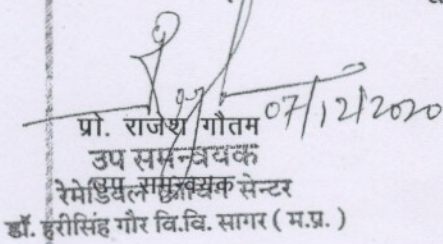 07/12/2020
प्रो. राजेश गौतम
उप समन्वयक
उप समन्वयक
रेमेडियल कोचिंग सेन्टर
डॉ. हरीसिंह गौर वि.वि. सागर ( म.प्र. )